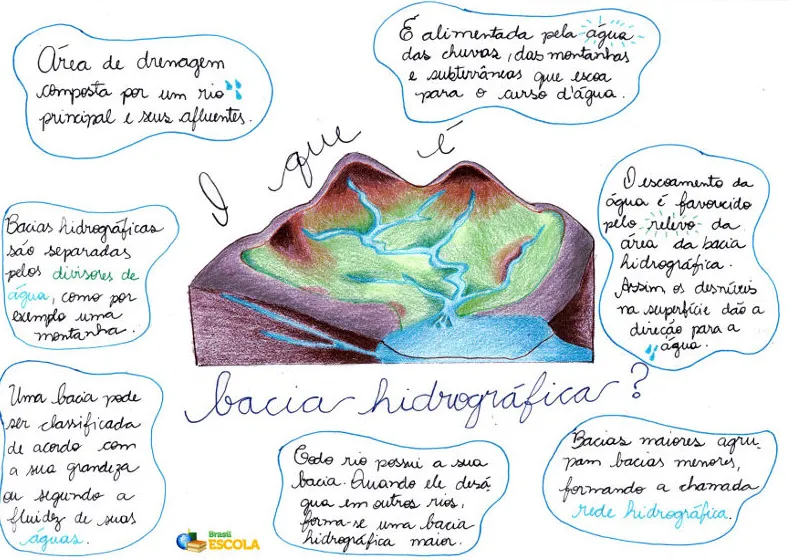 Área de drenagem
composta por um rio
principal e seus afluentes.
É alimentada pela água
das chuvas, das montanhas
e subterrâneas que escoa
para o curso d'água.
O que é
bacia hidrográfica?
Bacias hidrográficas
são separadas
pelos divisores de
água, como por
exemplo uma
montanha.
O escoamento da
água é favorecido
pelo relevo da
área da bacia
hidrográfica.
Assim os desníveis
na superfície dão a
direção para a
água.
Uma bacia pode
ser classificada
de acordo com
a sua grandeza
ou segundo a
fluidez de suas
águas.
Todo rio possui a sua
bacia. Quando ele desá-
gua em outros rios,
forma-se uma bacia
hidrográfica maior.
Bacias maiores agru-
pam bacias menores,
formando a chamada
rede hidrográfica.
Brasil
ESCOLA